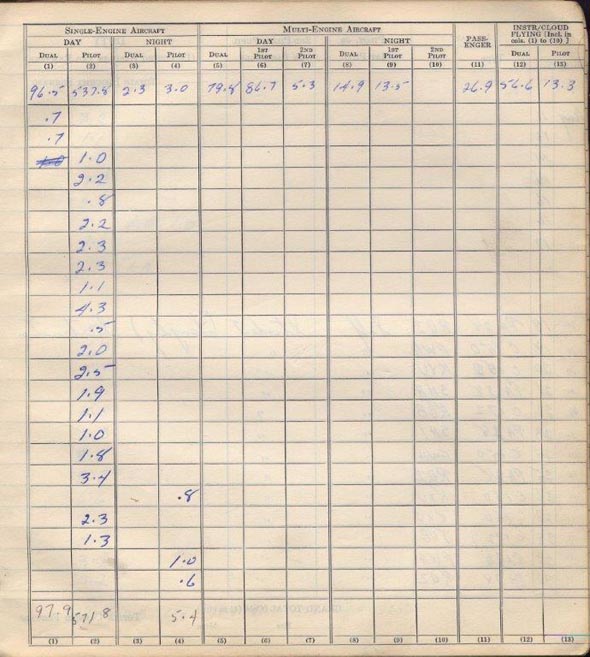 SINGLE-ENGINE AIRCRAFT MULTI-ENGINE AIRCRAFT PASS-ENGER INSTR/CLOUD FLYING (Incl. in cols. (1) to (10) ]
DAY NIGHT DAY NIGHT
DUAL PILOT DUAL PILOT DUAL 1ST PILOT 2ND PILOT DUAL 1ST PILOT 2ND PILOT DUAL PILOT
(1) (2) (3) (4) (5) (6) (7) (8) (9) (10) (11) (12) (13)
96.5 537.8 2.3 3.0 79.8 86.7 5.3 14.9 13.5 26.9 56.6 13.3
.7
.7
1.0 1.0
2.2
.8
2.2
2.3
2.3
1.1
4.3
.5
2.0
2.5
1.9
1.1
1.0
1.8
3.4
.8
2.3
1.3
1.0
.6
97.9 571.8 5.4
(1) (2) (3) (4) (5) (6) (7) (8) (9) (10) (11) (12) (13)